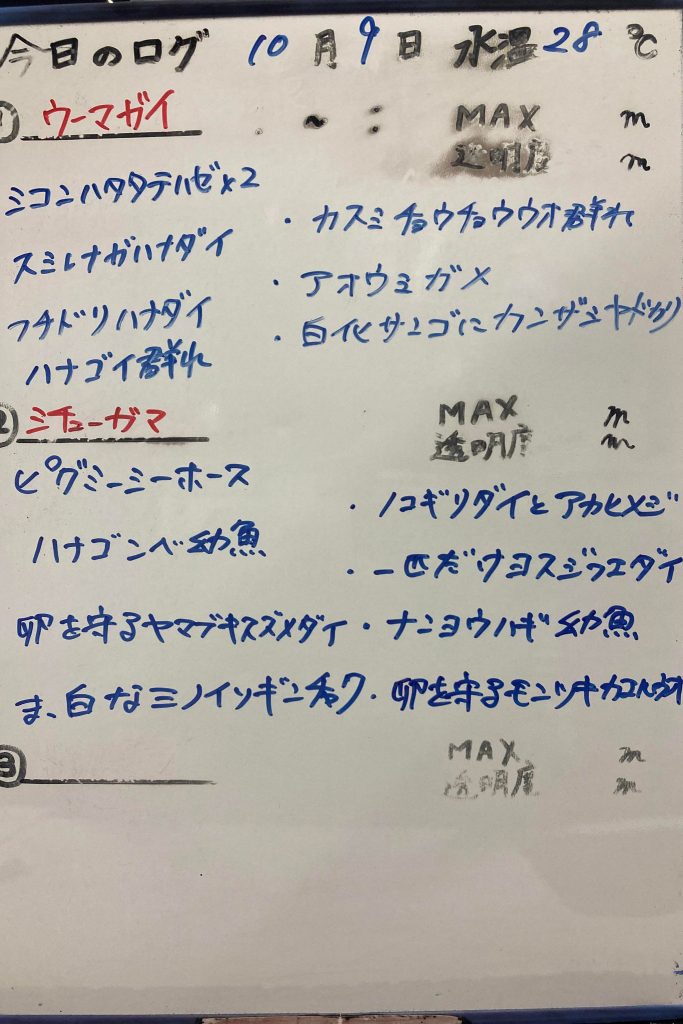 今日のログ 10月9日 水温28℃
① ウーマガイ . ~ : MAX m
透明度 m
ミコンハタタテハゼx2
・カスミチョウチョウウオ群れ
スミレナガハナダイ
・アオウミガメ
フチドリハナダイ
・白化サンゴにカンザシヤドカリ
ハナゴイ群れ
② ミチューガマ MAX m
透明度 m
ピグミーシーホース
・ノコギリダイとアカヒメジ
ハナゴンベ幼魚
・一匹だけヨスジフエダイ
卵を守るヤマブキスズメダイ・ナンヨウハギ幼魚
ま、白なミノイソギンチャク・卵を守るモンツキカエルウオ
③ MAX m
透明度 m